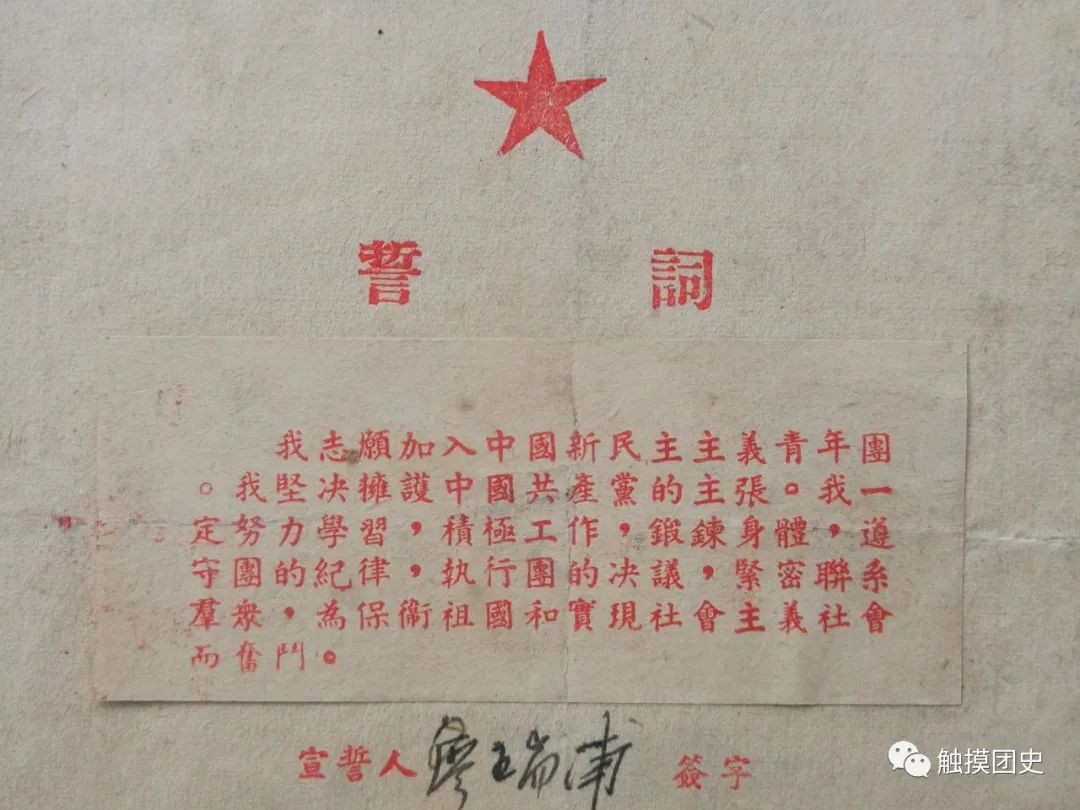 誓 詞
我志願加入中國新民主主義青年團
。我堅决擁護中國共產黨的主張。我一
定努力學習，積極工作，鍛鍊身體，遵
守團的紀律，執行團的决議，緊密聯系
羣衆，為保衛祖國和實現社會主義社會
而奮鬥。
宣誓人 廖瑞 簽字
触摸团史